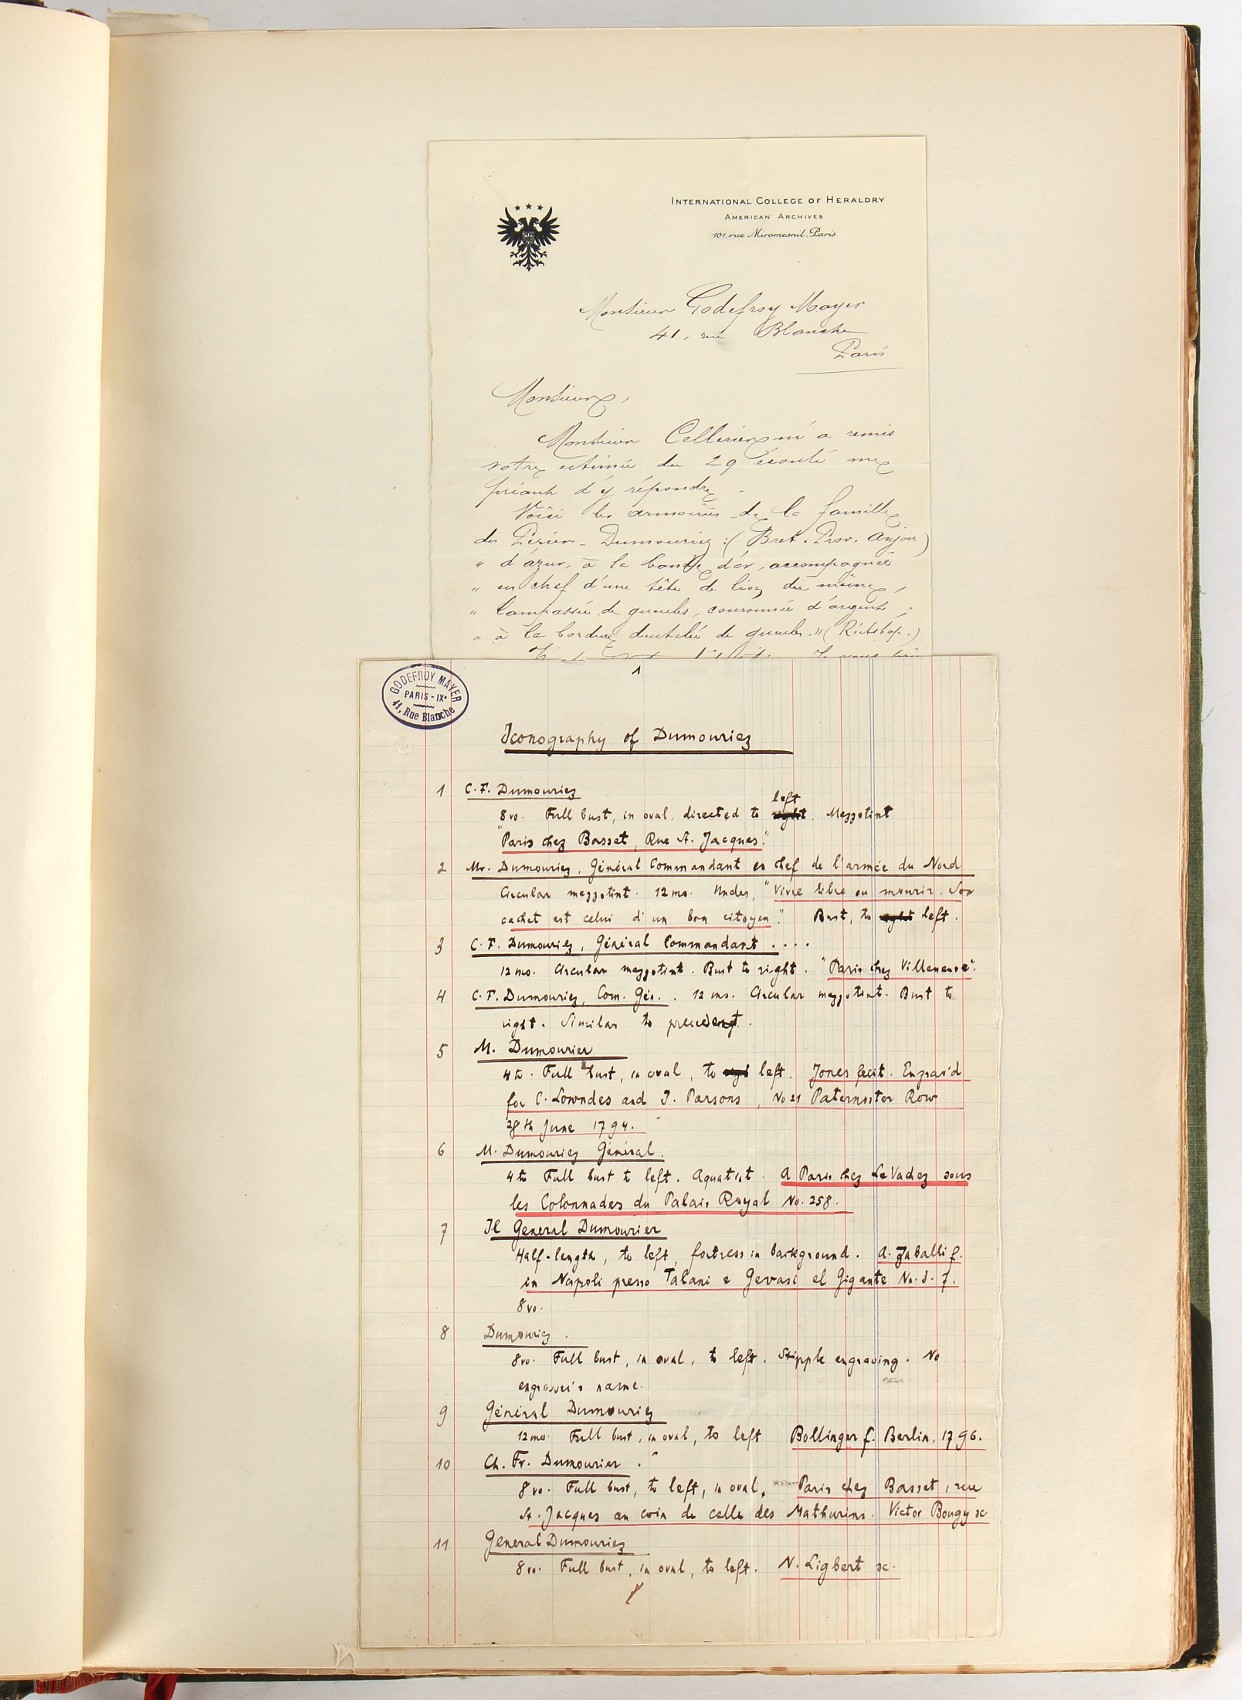 INTERNATIONAL COLLEGE OF HERALDRY
AMERICAN ARCHIVES
101, rue Miromesnil, Paris
Monsieur Godefroy Mayer
41, rue Blanche
Paris
Monsieur,
Monsieur Cellerier m'a remis
votre estimée du 29 écoulé me
priant d'y répondre.
Voici les armoiries de la famille
du Périer-Dumouriez : (Bret. Prov. Anjou)
" d'azur, à la bande d'or, accompagnée
" en chef d'une tête de lion du même,
" lampassée de gueules, couronnée d'argent ;
" à la bordure dentelée de gueules." (Rietstap.)
GODEFROY MAYER
PARIS-IXe
41, Rue Blanche
1
Iconography of Dumouriez
1 C. F. Dumouriez
left
8vo. Full bust, in oval, directed to right. Mezzotint
"Paris chez Basset, Rue St. Jacques."
2 Mr. Dumouriez, Général Commandant en chef de l'armée du Nord
Circular mezzotint. 12mo. Under, "Vivre libre ou mourir. Son
cachet est celui d'un bon citoyen." Bust, to right left.
3 C. F. Dumouriez, Général Commandant ....
12mo. Circular mezzotint. Bust to right. "Paris chez Villeneuve".
4 C. F. Dumouriez, Com. Gén. . 12mo. Circular mezzotint. Bust to
right. Similar to precedent.
5 M. Dumourier
4to. Full bust, in oval, to right left. Jones fecit. Engrav'd
for C. Lowndes and J. Parsons, No 21 Paternoster Row
28th June 1794.
6 M. Dumouriez Général.
4to Full bust to left. Aquatint. A Paris chez Le Vachez sous
les Colonnades du Palais Royal No. 258.
7 Il General Dumourier
Half-length, to left, fortress in background. A. Zaballi f.
in Napoli presso Talani e Gervasi al Gigante No. 3. f.
8vo.
8 Dumouriez.
8vo. Full bust, in oval, to left. Stipple engraving. No
engraver's name.
9 Général Dumouriez
12mo. Full bust, in oval, to left Bollinger f. Berlin. 1796.
10 Ch. Fr. Dumourier.
8vo. Full bust, to left, in oval. Paris chez Basset, rue
St. Jacques au coin de celle des Mathurins. Victor Bougy sc
11 General Dumouriez
8vo. Full bust, in oval, to left. N. Ligbert sc.